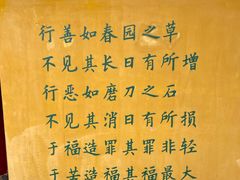 行善如春园之草
不见其长日有所增
行恶如磨刀之石
不见其消日有所损
于福造罪其罪非轻
于苦造福其福最大